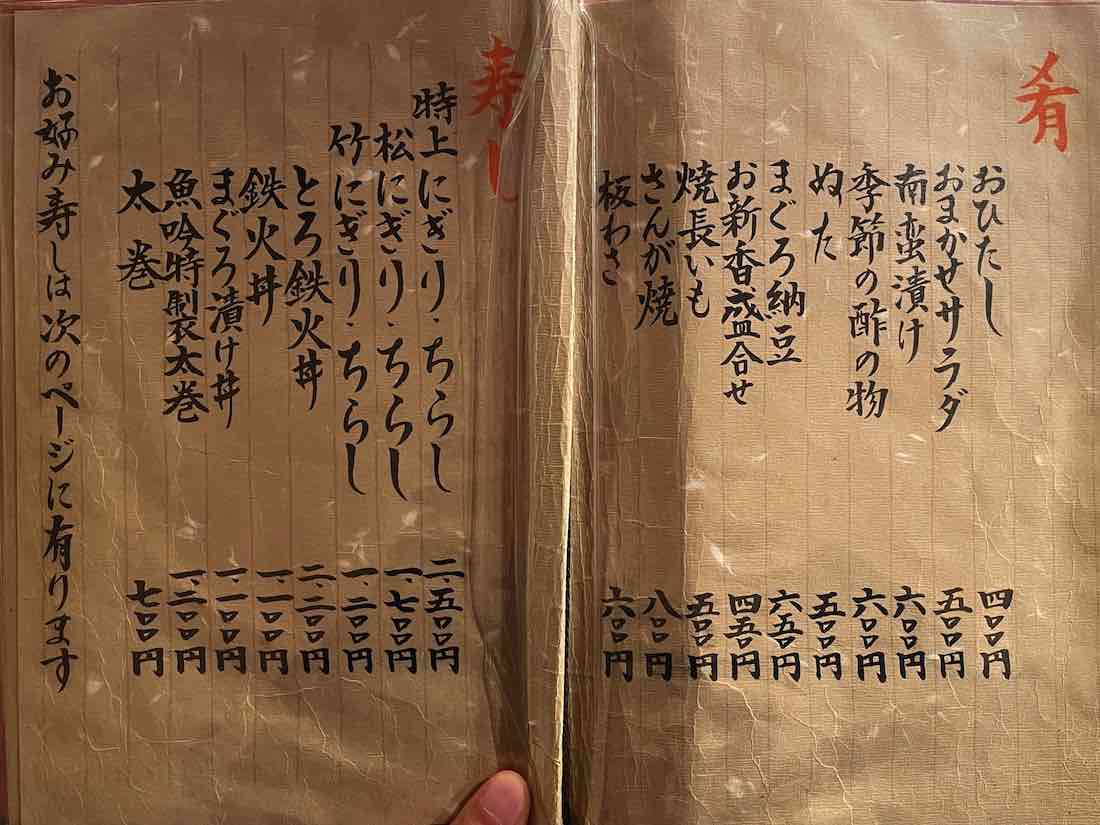 肴
おひたし 四〇〇円
おまかせサラダ 五〇〇円
南蛮漬け 六〇〇円
季節の酢の物 六〇〇円
ぬた 五〇〇円
まぐろ納豆 六五〇円
お新香盛合せ 四五〇円
焼長いも 五〇〇円
さんが焼 八〇〇円
板わさ 六〇〇円
寿し
特上にぎり・ちらし 二・五〇〇円
松にぎり・ちらし 一・七〇〇円
竹にぎり・ちらし 一・二〇〇円
とろ鉄火丼 二・二〇〇円
鉄火丼 一・一〇〇円
まぐろ漬け丼 一・一〇〇円
魚吟特製太巻 一・二〇〇円
太巻 七〇〇円
お好み寿しは次のページに有ります